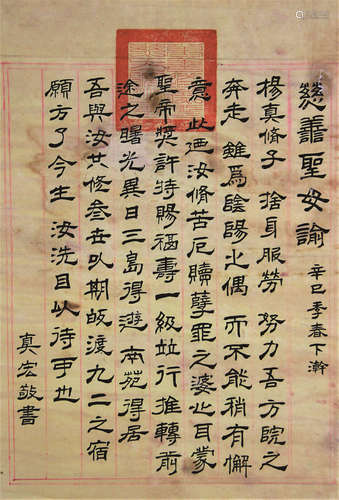 慈善聖母諭 辛巳季春下澣
楊真脩子 捨身服勞 努力吾方院之
奔走 雖為陰陽之偶 而不能稍有懈
意 此迺汝脩苦厄贖孽罪之婆心耳蒙
聖帝奬許特賜福壽一級並行推轉前
途之曙光異日三島得遊 南苑得居
吾與汝共脩叁世以期皈渡九二之宿
願方了今生 汝洗目以待可也
真宏敬書